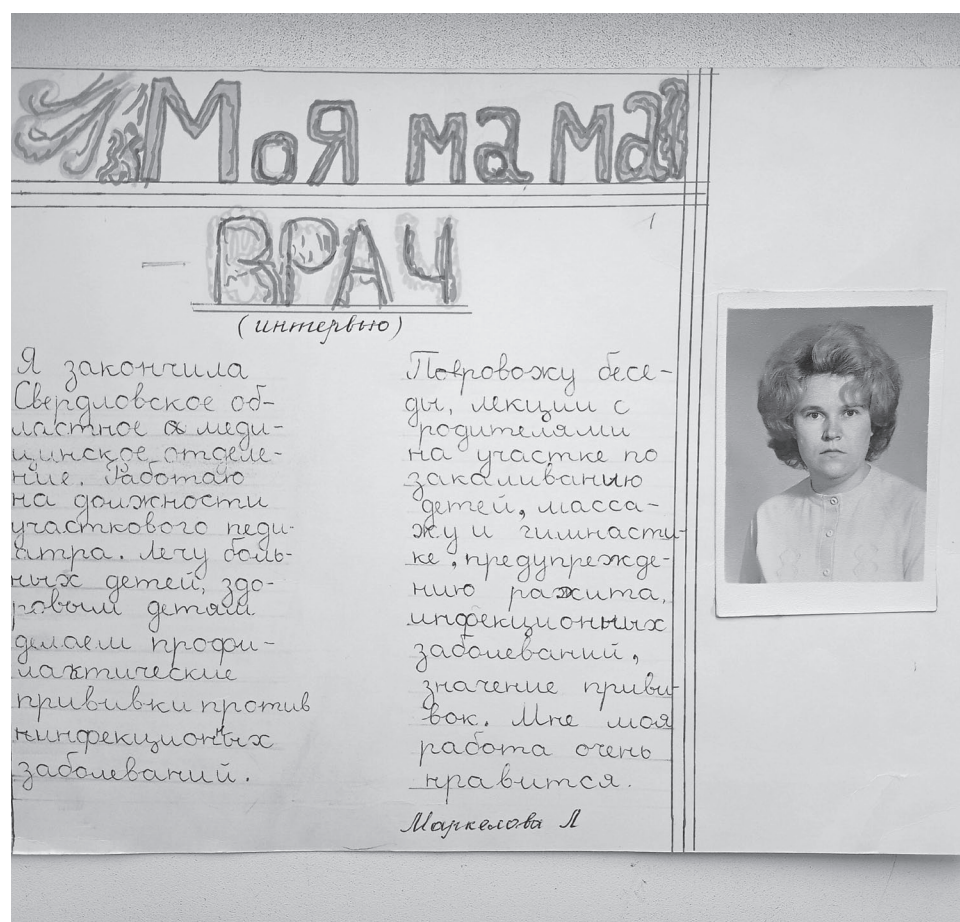 Моя мама
1
- ВРАЧ
(интервью)
Я закончила
Свердловское об-
ластное меди-
цинское отделе-
ние. Работаю
на должности
участкового педи-
атра. Лечу боль-
ных детей, здо-
ровым детям
делаем профи-
лактические
прививки против
нинфекционных
заболеваний.
Повровожу бесе-
ды, лекции с
родителями
на участке по
закаливанию
детей, масса-
жу и гимнасти-
ке, предупрежде-
нию рахита,
инфекционных
заболеваний,
значение приви-
вок. Мне моя
работа очень
нравится.
Маркелова Л